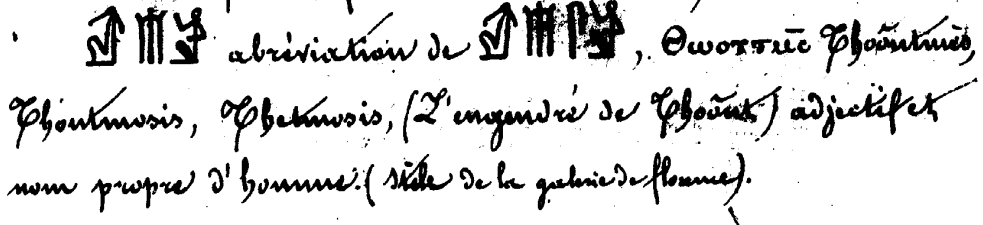 abréviation de , Ⲑⲱⲟⲩⲧⲙⲥ̄ Thoôutmès,
Thoutmosis, Thetmosis, (L'engendré de Thoôut) adjectif et
nom propre d'homme. (Stèle de la galerie de florence).